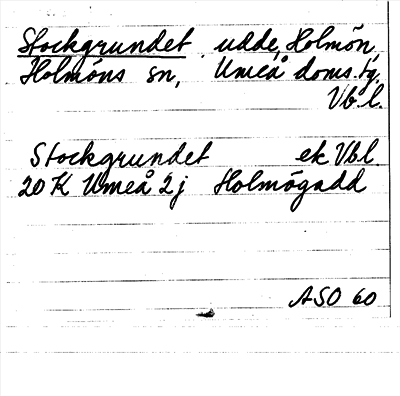 Stockgrundet udde, Holmön,
Holmöns sn, Umeå doms.tg.
Vb.l.
Stockgrundet ek Vbl.
20 K Umeå 2 j Holmögadd
ASO 60